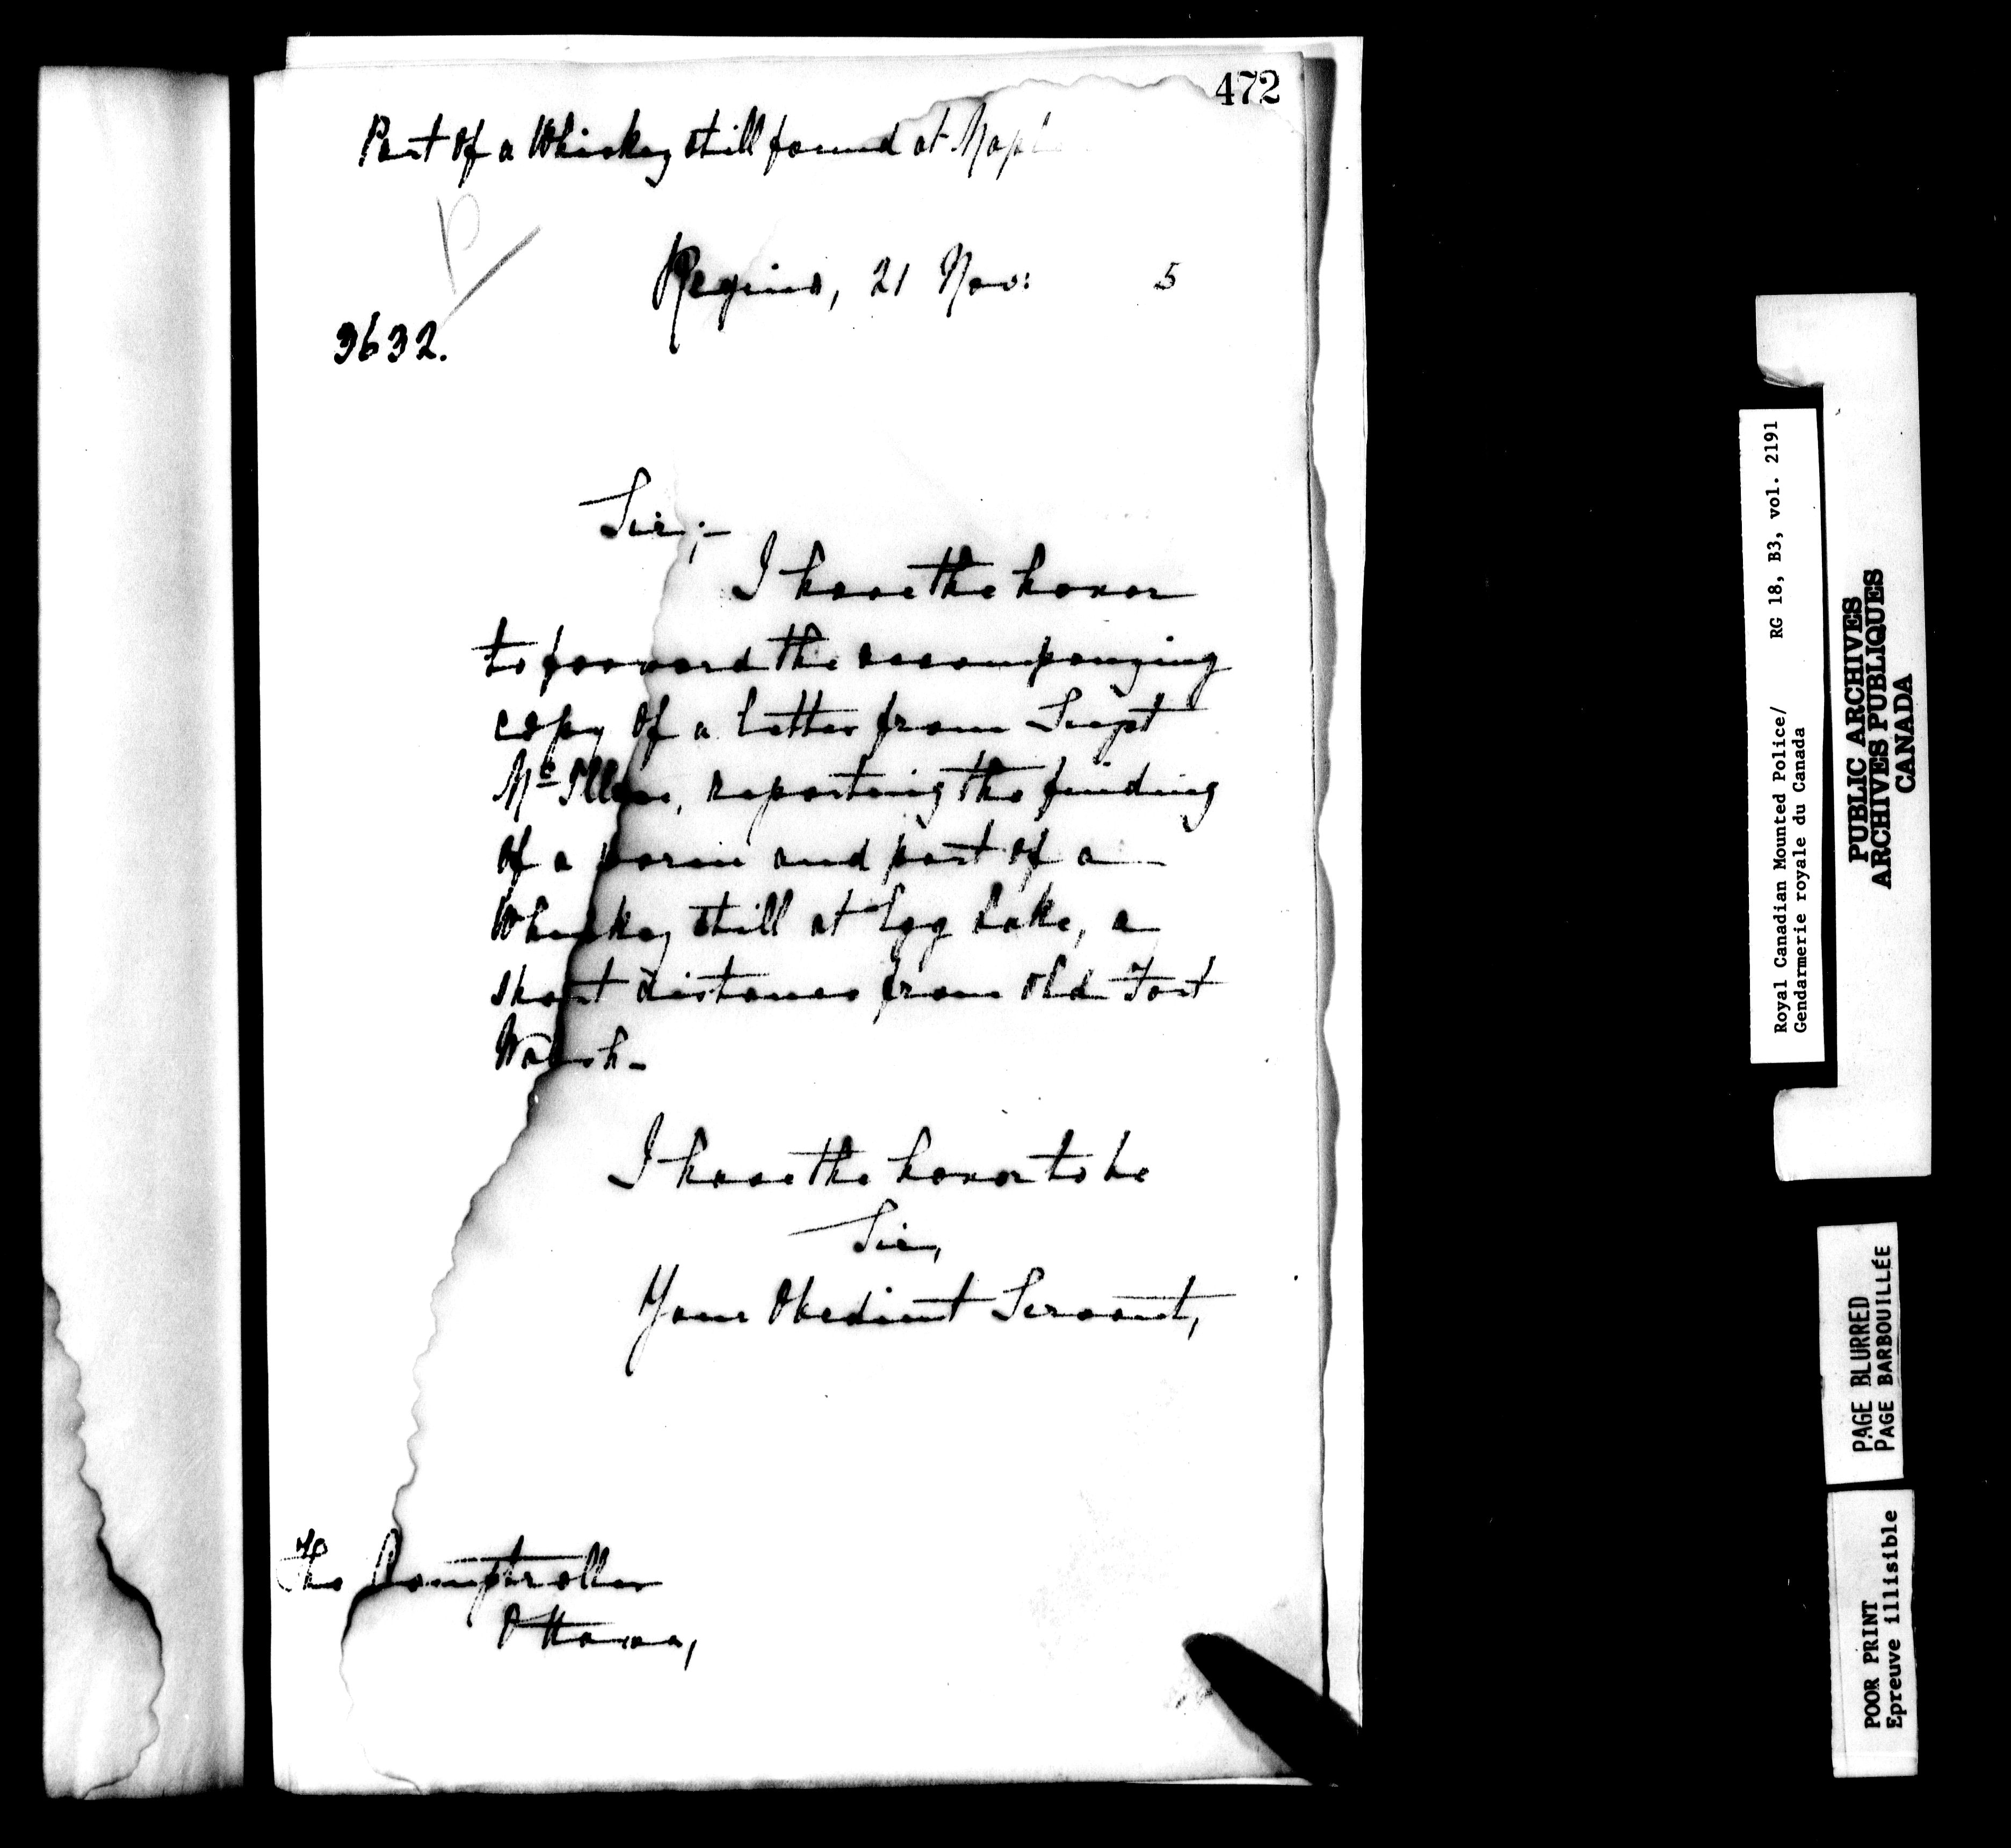 472
Part of a Whiskey still found at Maple
Regina, 21 Nov: 5
3632.
Sir;-
I have the honor
to forward the accompanying
copy of a letter from Supt
McIllree, reporting the finding
of a worm and part of a
Whiskey still at Egg Lake, a
short distance from old Fort
Walsh-
I have the honor to be
Sir,
Your Obedient Servant,
The Comptroller
Ottawa,
Royal Canadian Mounted Police/ RG 18, B3, vol. 2191
Gendarmerie royale du Canada
PUBLIC ARCHIVES
ARCHIVES PUBLIQUES
CANADA
PAGE BLURRED
PAGE BARBOUILLÉE
POOR PRINT
Epreuve illisible